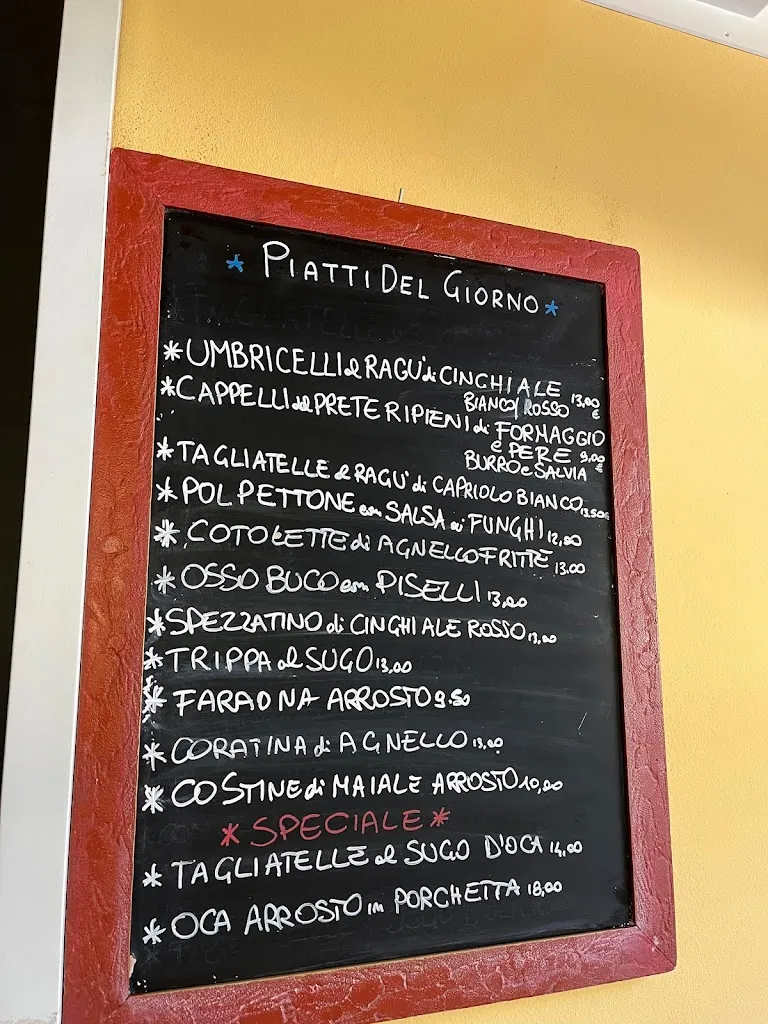 * PIATTI DEL GIORNO *
* UMBRICELLI al RAGU' di CINGHIALE
BIANCO/ROSSO 13,00 €
* CAPPELLI del PRETE RIPIENI di FORMAGGIO
e PERE 9,00 €
BURRO e SALVIA
* TAGLIATELLE al RAGU' di CAPRIOLO BIANCO 13.50€
* POLPETTONE con SALSA ai FUNGHI 12,00
* COTOLETTE di AGNELLO FRITTE 13.00
* OSSO BUCO con PISELLI 13,00
* SPEZZATINO di CINGHIALE ROSSO 13,00
* TRIPPA al SUGO 13,00
* FARAONA ARROSTO 9.50
* CORATINA di AGNELLO 13,00
* COSTINE di MAIALE ARROSTO 10,00
* SPECIALE *
* TAGLIATELLE al SUGO D'OCA 14,00
* OCA ARROSTO in PORCHETTA 18,00